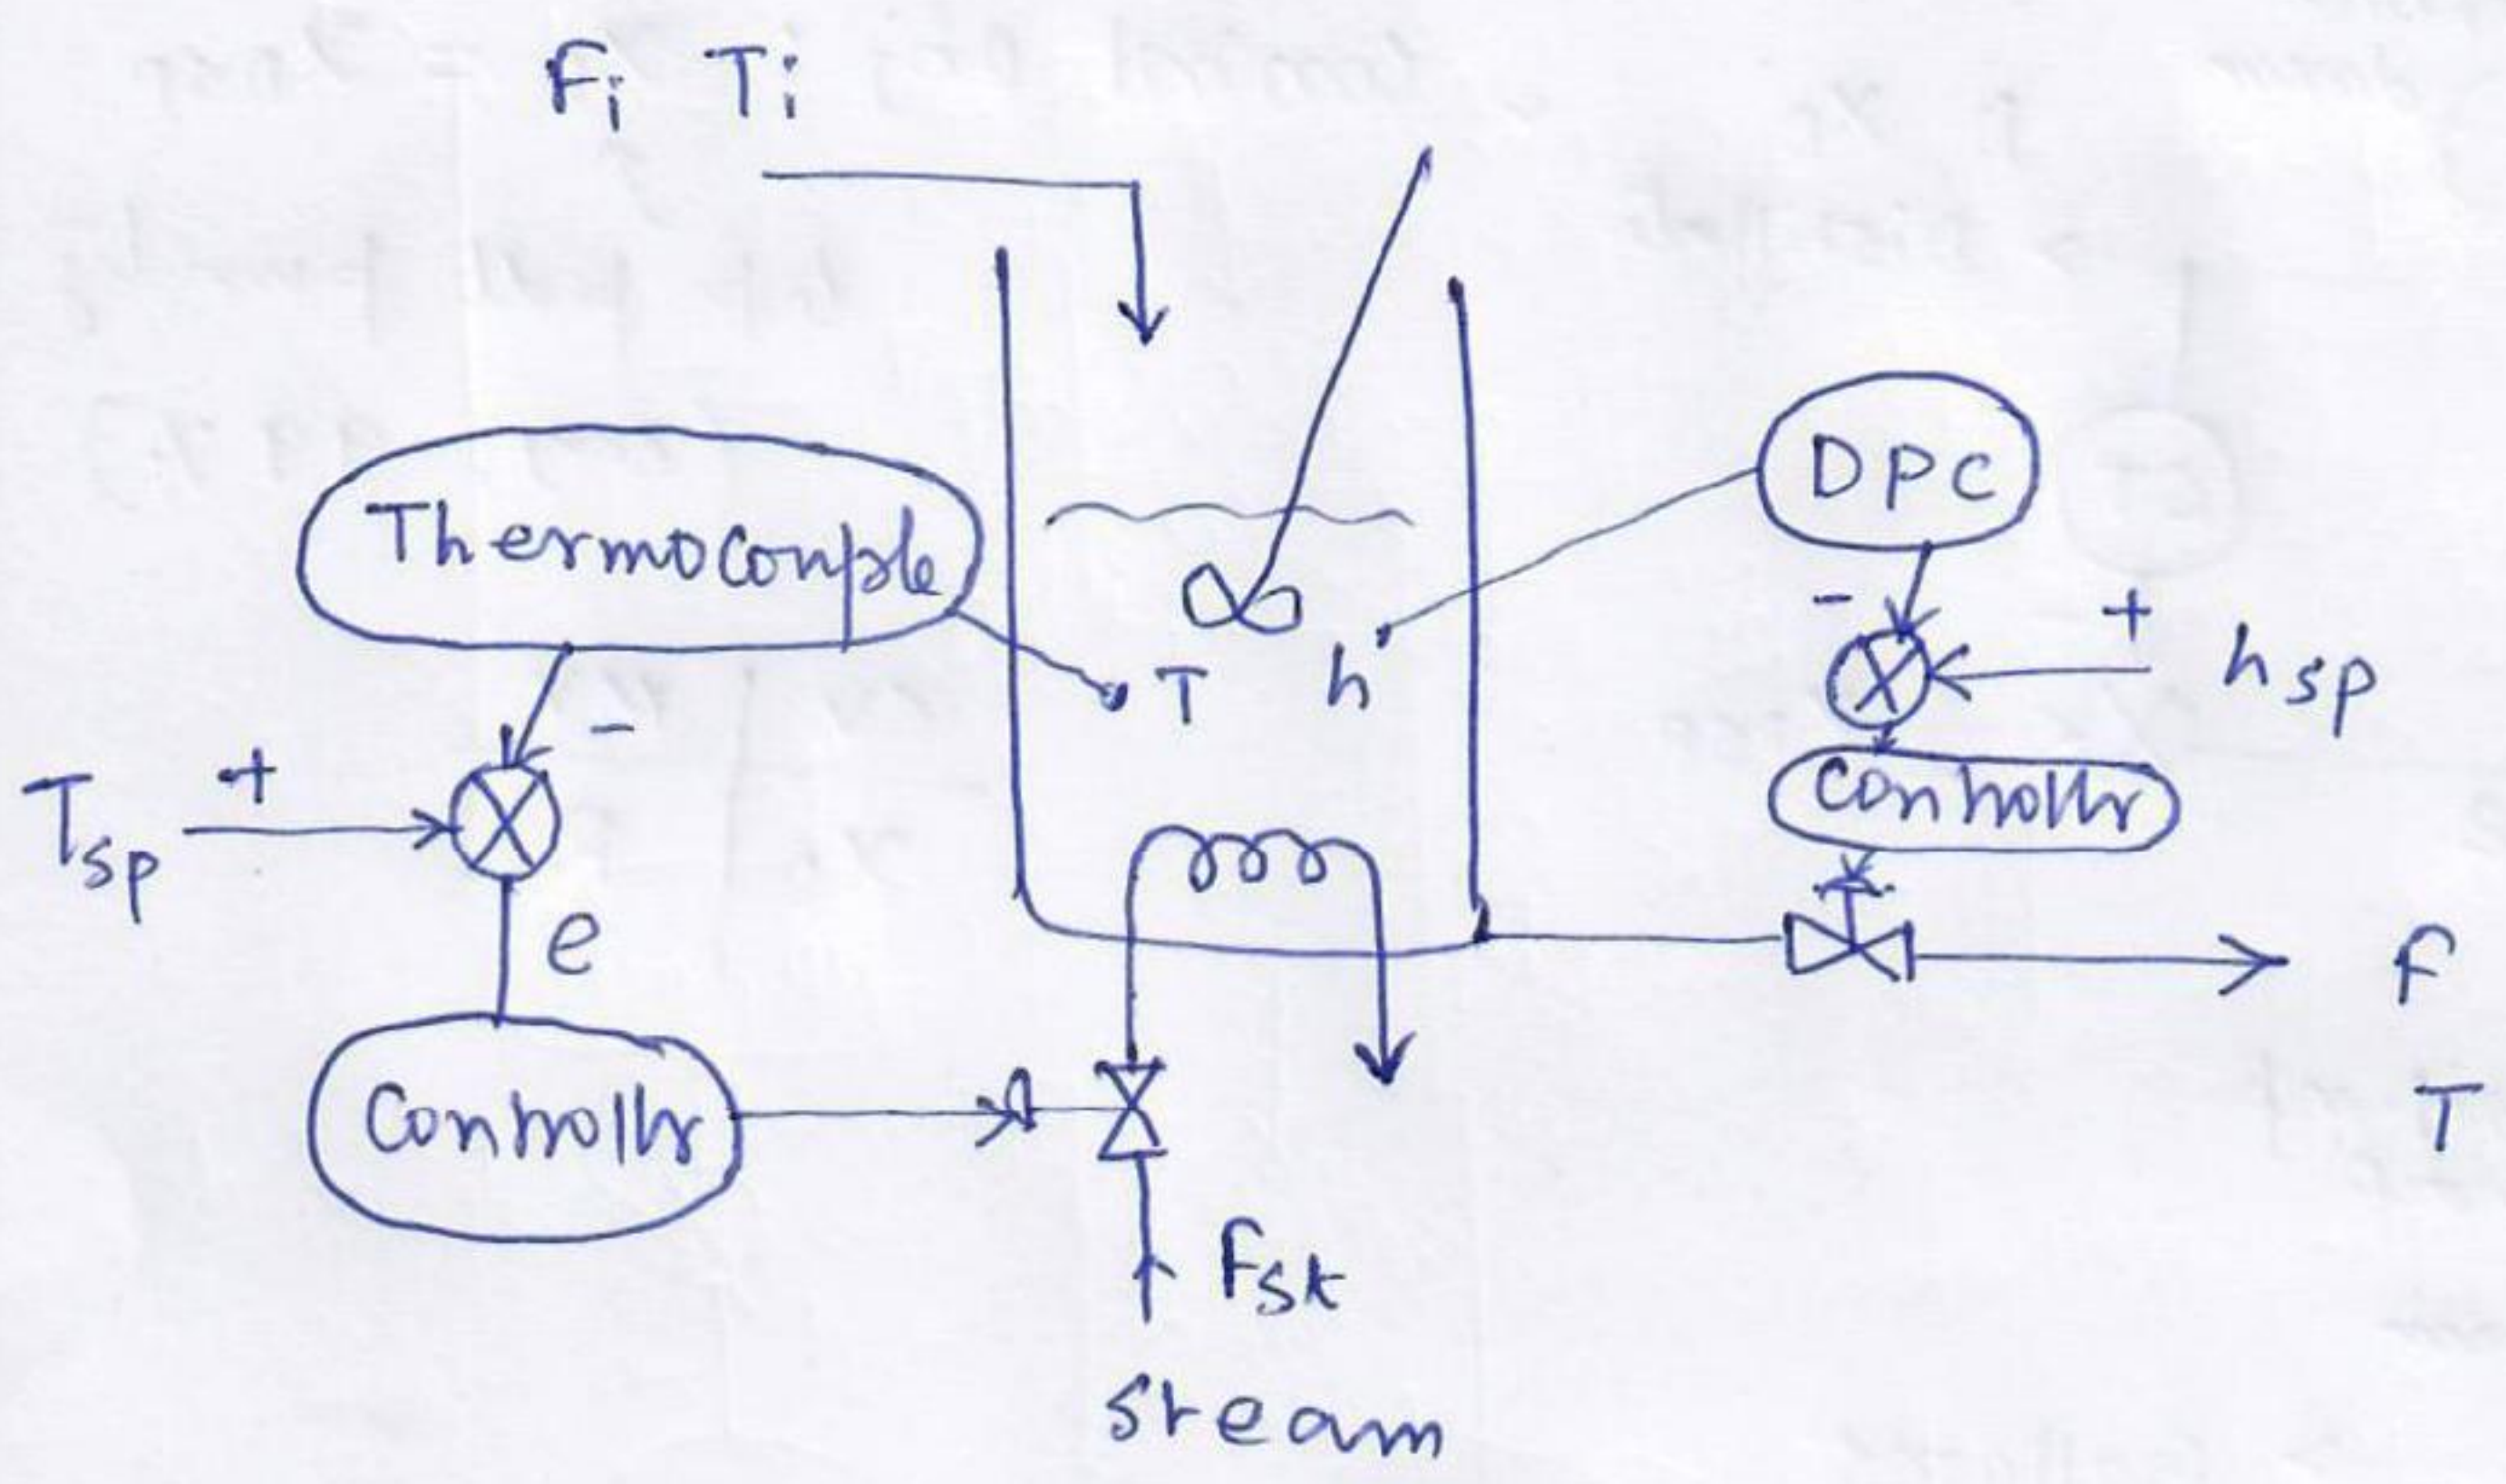 Fi Ti
Thermocouple
DPC
T
h
-
+
hsp
Tsp
+
-
Controller
e
F
T
Controller
Fst
Steam